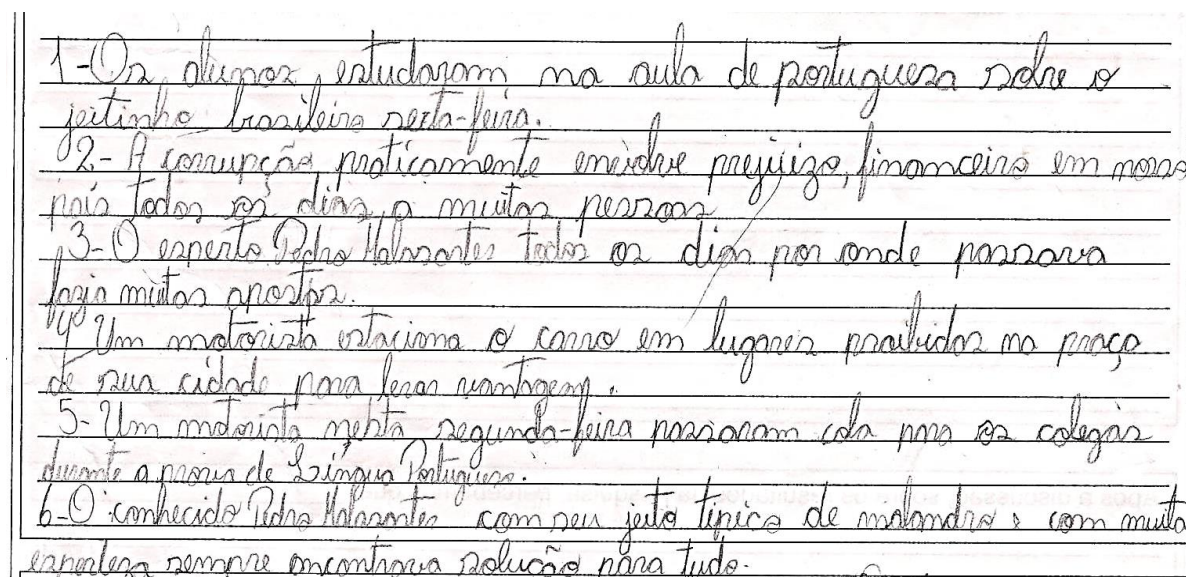 1-Os alunos, estudaram na aula de portuguesa sobre o
jeitinho brasileiro sexta-feira.
2- A corrupção, praticamente envolve prejuizo, financeiro em nosso
país todos os dias, a muitas pessoas
3- O esperto Pedro Malasartes todos os dias por onde passava
fazia muitas apostas.
4 Um motorista estaciona o carro em lugares proibidos na praça
de sua cidade para levar vantagem.
5- Um motorista nesta segunda-feira passaram cola para os colegas
durante a prova de Língua Portuguesa.
6-O conhecido Pedro Malasartes com seu jeito típico de malandro, com muita
esperteza sempre encontrava solução para tudo.